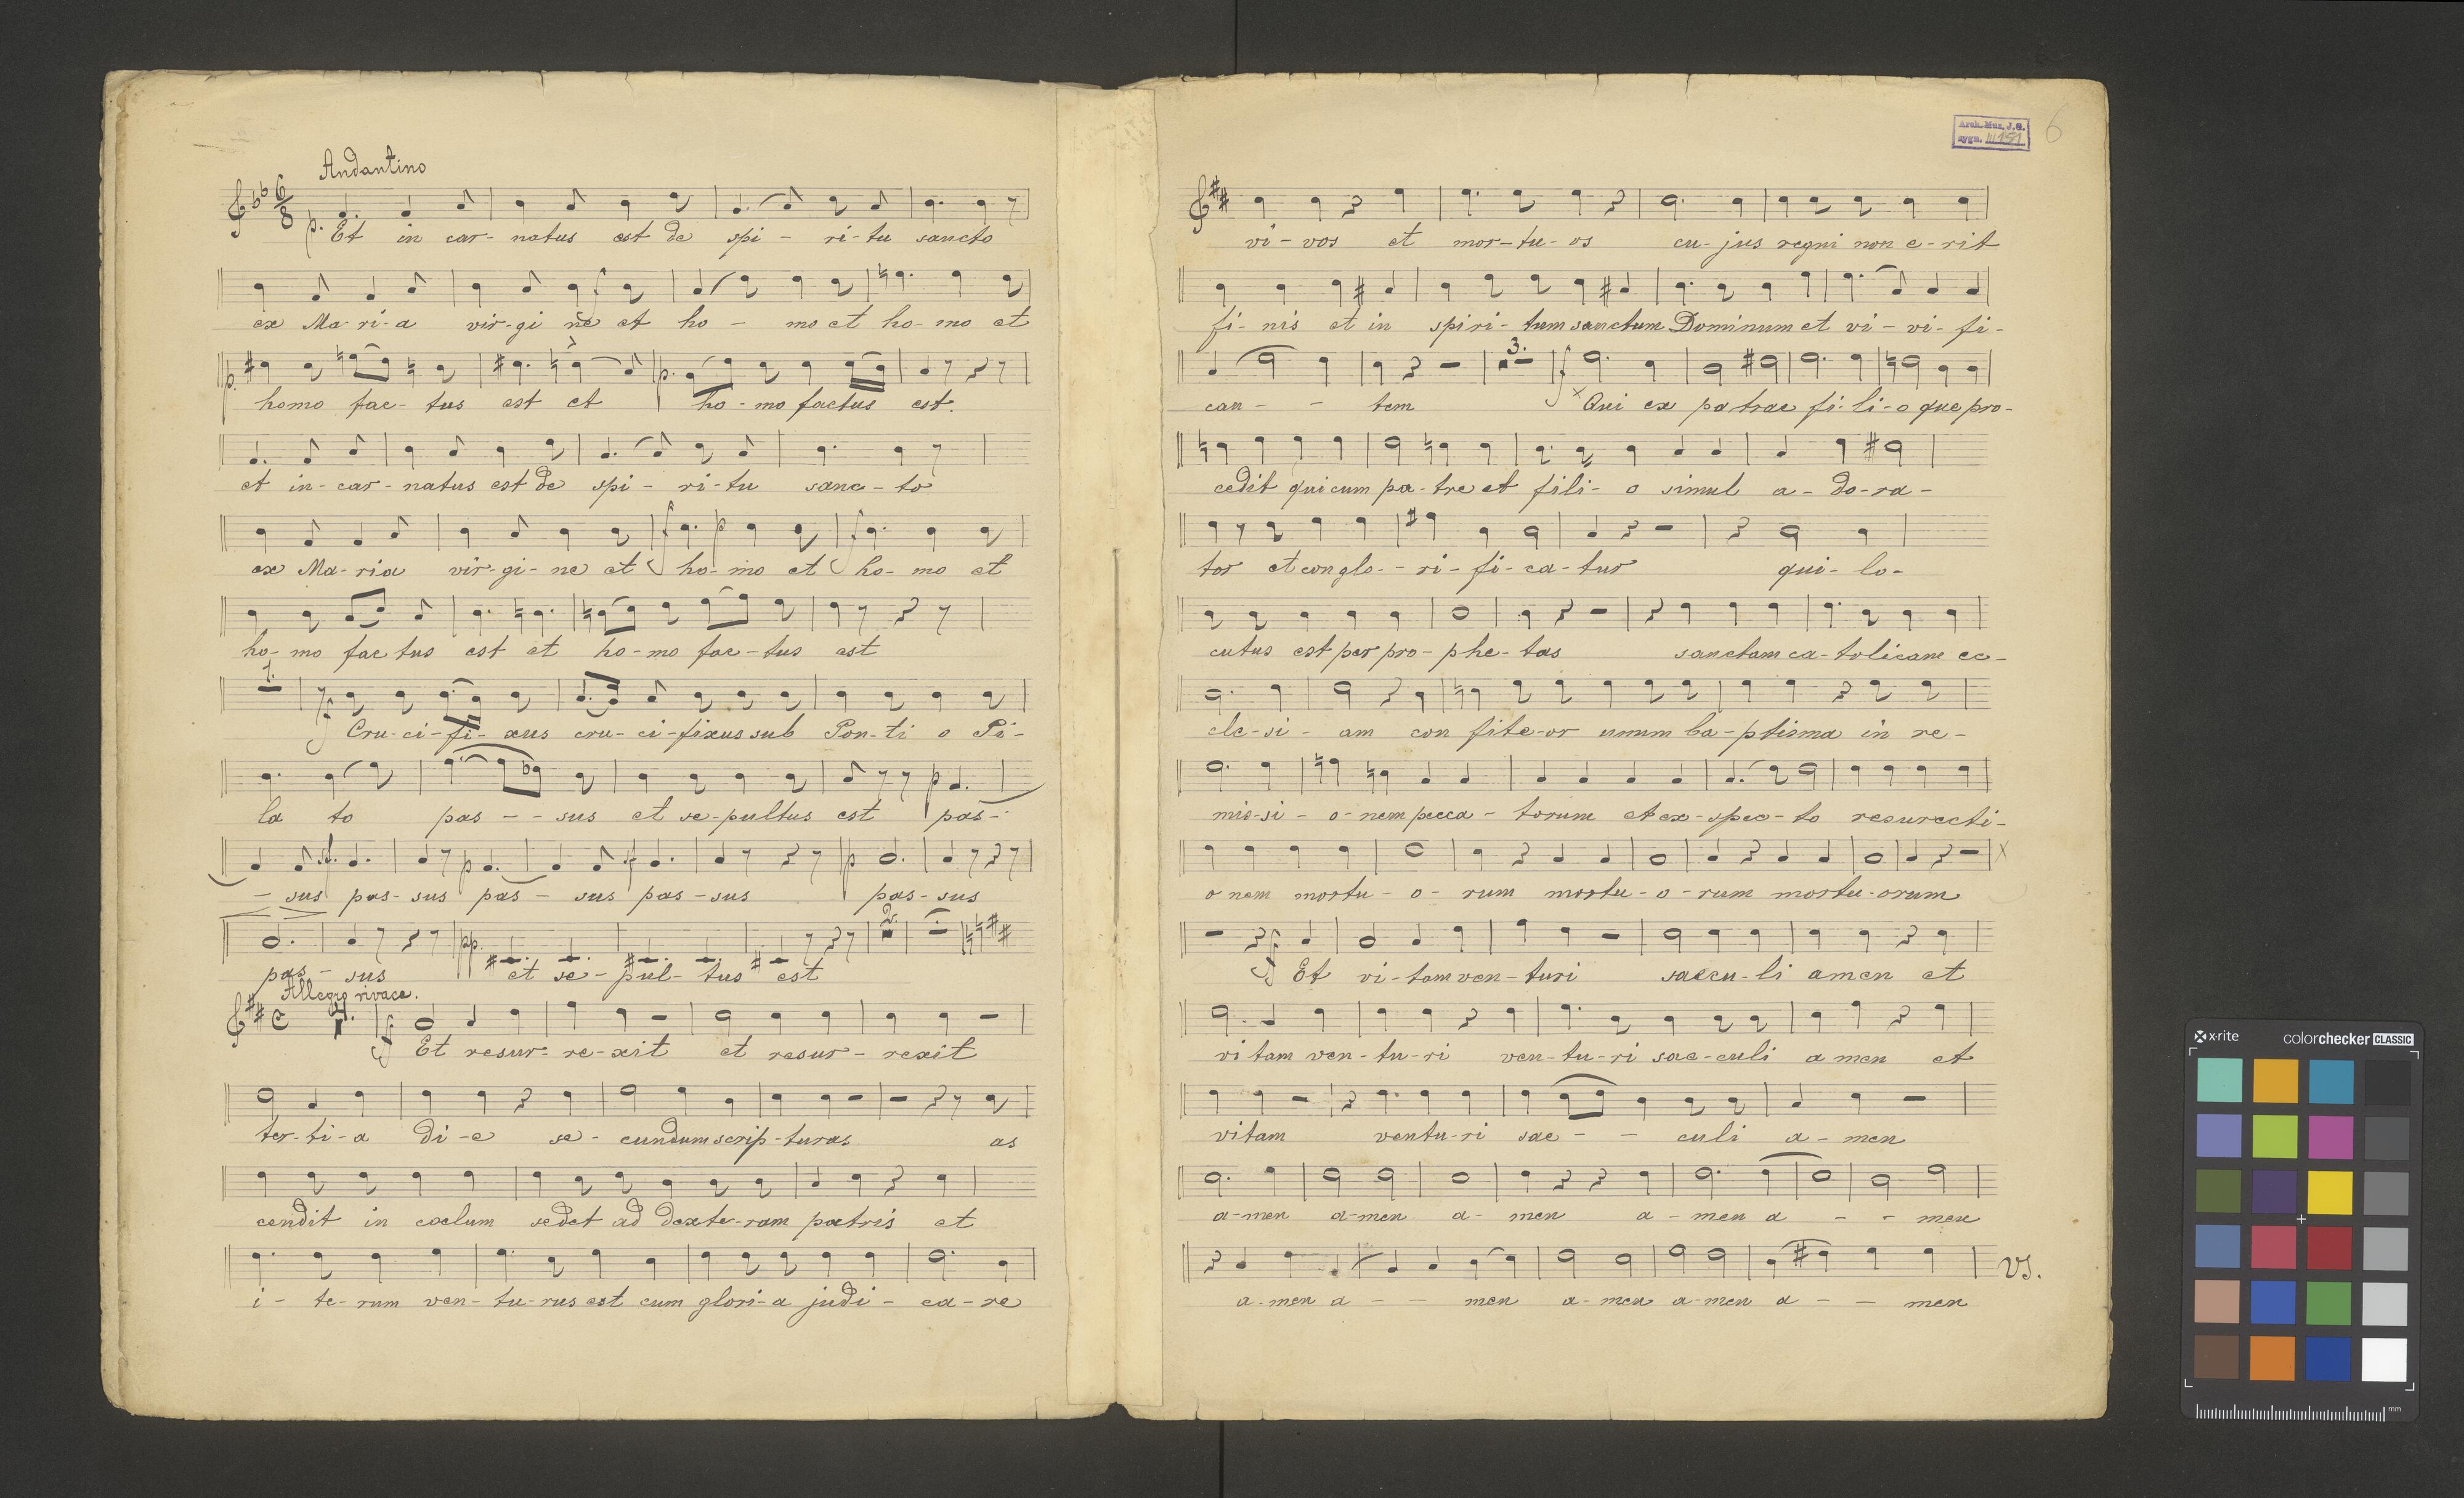 Andantino
6
8
p. Et in car- natus est de spi - ri-tu sancto
ex Ma-ri-a vir-gi ne et ho - mo et ho-mo et
p. homo fac- tus est et p. ho-mo factus est.
et in-car-natus est de spi- ri-tu sanc-to
ex Ma-ria vir-gi-ne et f ho-mo p et f ho-mo et
ho-mo fac tus est et ho-mo fac-tus est
1.
f Cru-ci-fi-xus cru-ci-fixus sub Pon-ti o Pi-
la to pas - - sus et se-pultus est p pas-
- sus pas-sus p pas- sus pas-sus p pas-sus
pas- sus pp. et se-pul-tus est 2.
Allegro vivace.
C f Et resur-re-xit et resur-rexit
ter-ti-a di-e se-cundum scrip-turas as
cendit in coelum sedet ad dexte-ram patris et
i- te-rum ven-tu-rus est cum glori-a judi-ca-re
Arch. Muz. J. G.
sygn. III 151
6
vi-vos et mor-tu-os cu-jus regni non e-rit
fi-nis et in spiri-tum sanctum Dominum et vi-vi-fi-
can - - tem 3. f x Qui ex patrae fi-li-o que pro-
cedit qui cum pa-tre et fili-o simul a-do-ra-
tor et con glo--ri-fi-ca-tur qui-lo-
cutus est per pro-phe-tas sanctam ca-tolicam ec-
cle-si-am con fite-or unum ba-ptisma in re-
mis-si-o-nem pecca-torum et ex-spec-to resurecti-
o nem mortu-o-rum mortu-o-rum mortu-orum x
f Et vi-tam ven-turi saecu-li amen et
vi tam ven-tu-ri ven-tu-ri sae-culi a men et
vitam ventu-ri sae - - culi a-men
a-men a-men a-men a-men a - - men
a-men a - - men a-men a-men a - - men VS.
x·rite colorchecker CLASSIC
mm